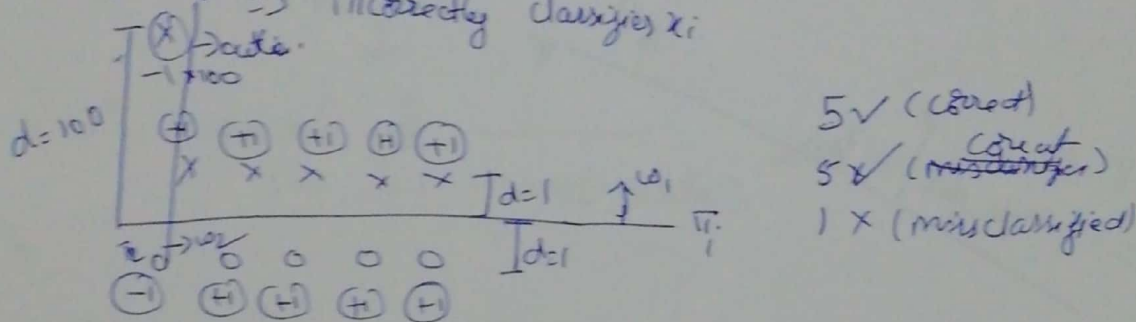 -> incorrectly classifies xi
x
-1 * 100
d=100
+ +1 +1 +1 +1
x x x x x
d=1
w1
π1
0 0 0 0
d=1
-1 +1 +1 +1 +1
5✓ (correct)
correct
5 ✓
1 × (misclassified)